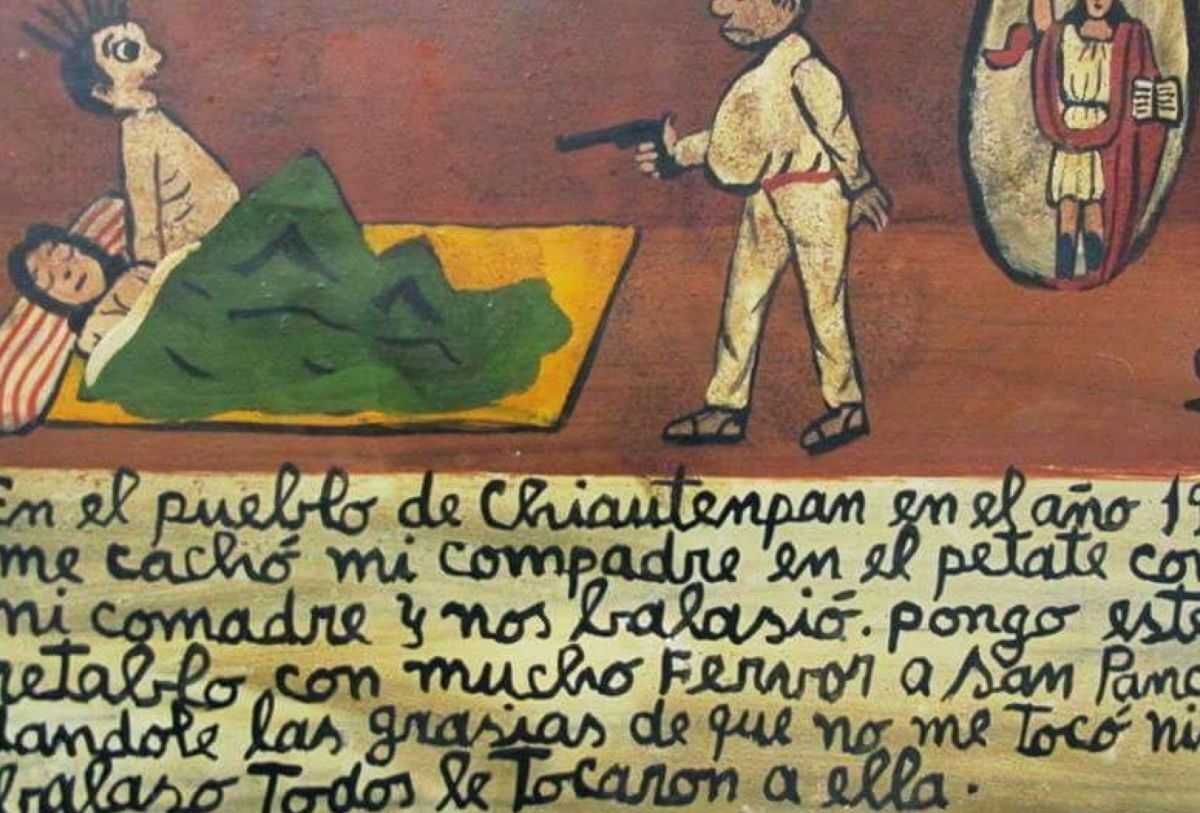 En el pueblo de Chiautenpan en el año 19
me cachó mi compadre en el petate con
mi comadre y nos balasió. pongo este
retablo con mucho Fervor a San Panc
dandole las grasias de que no me Tocó ni
balaso Todos le Tocaron a ella.